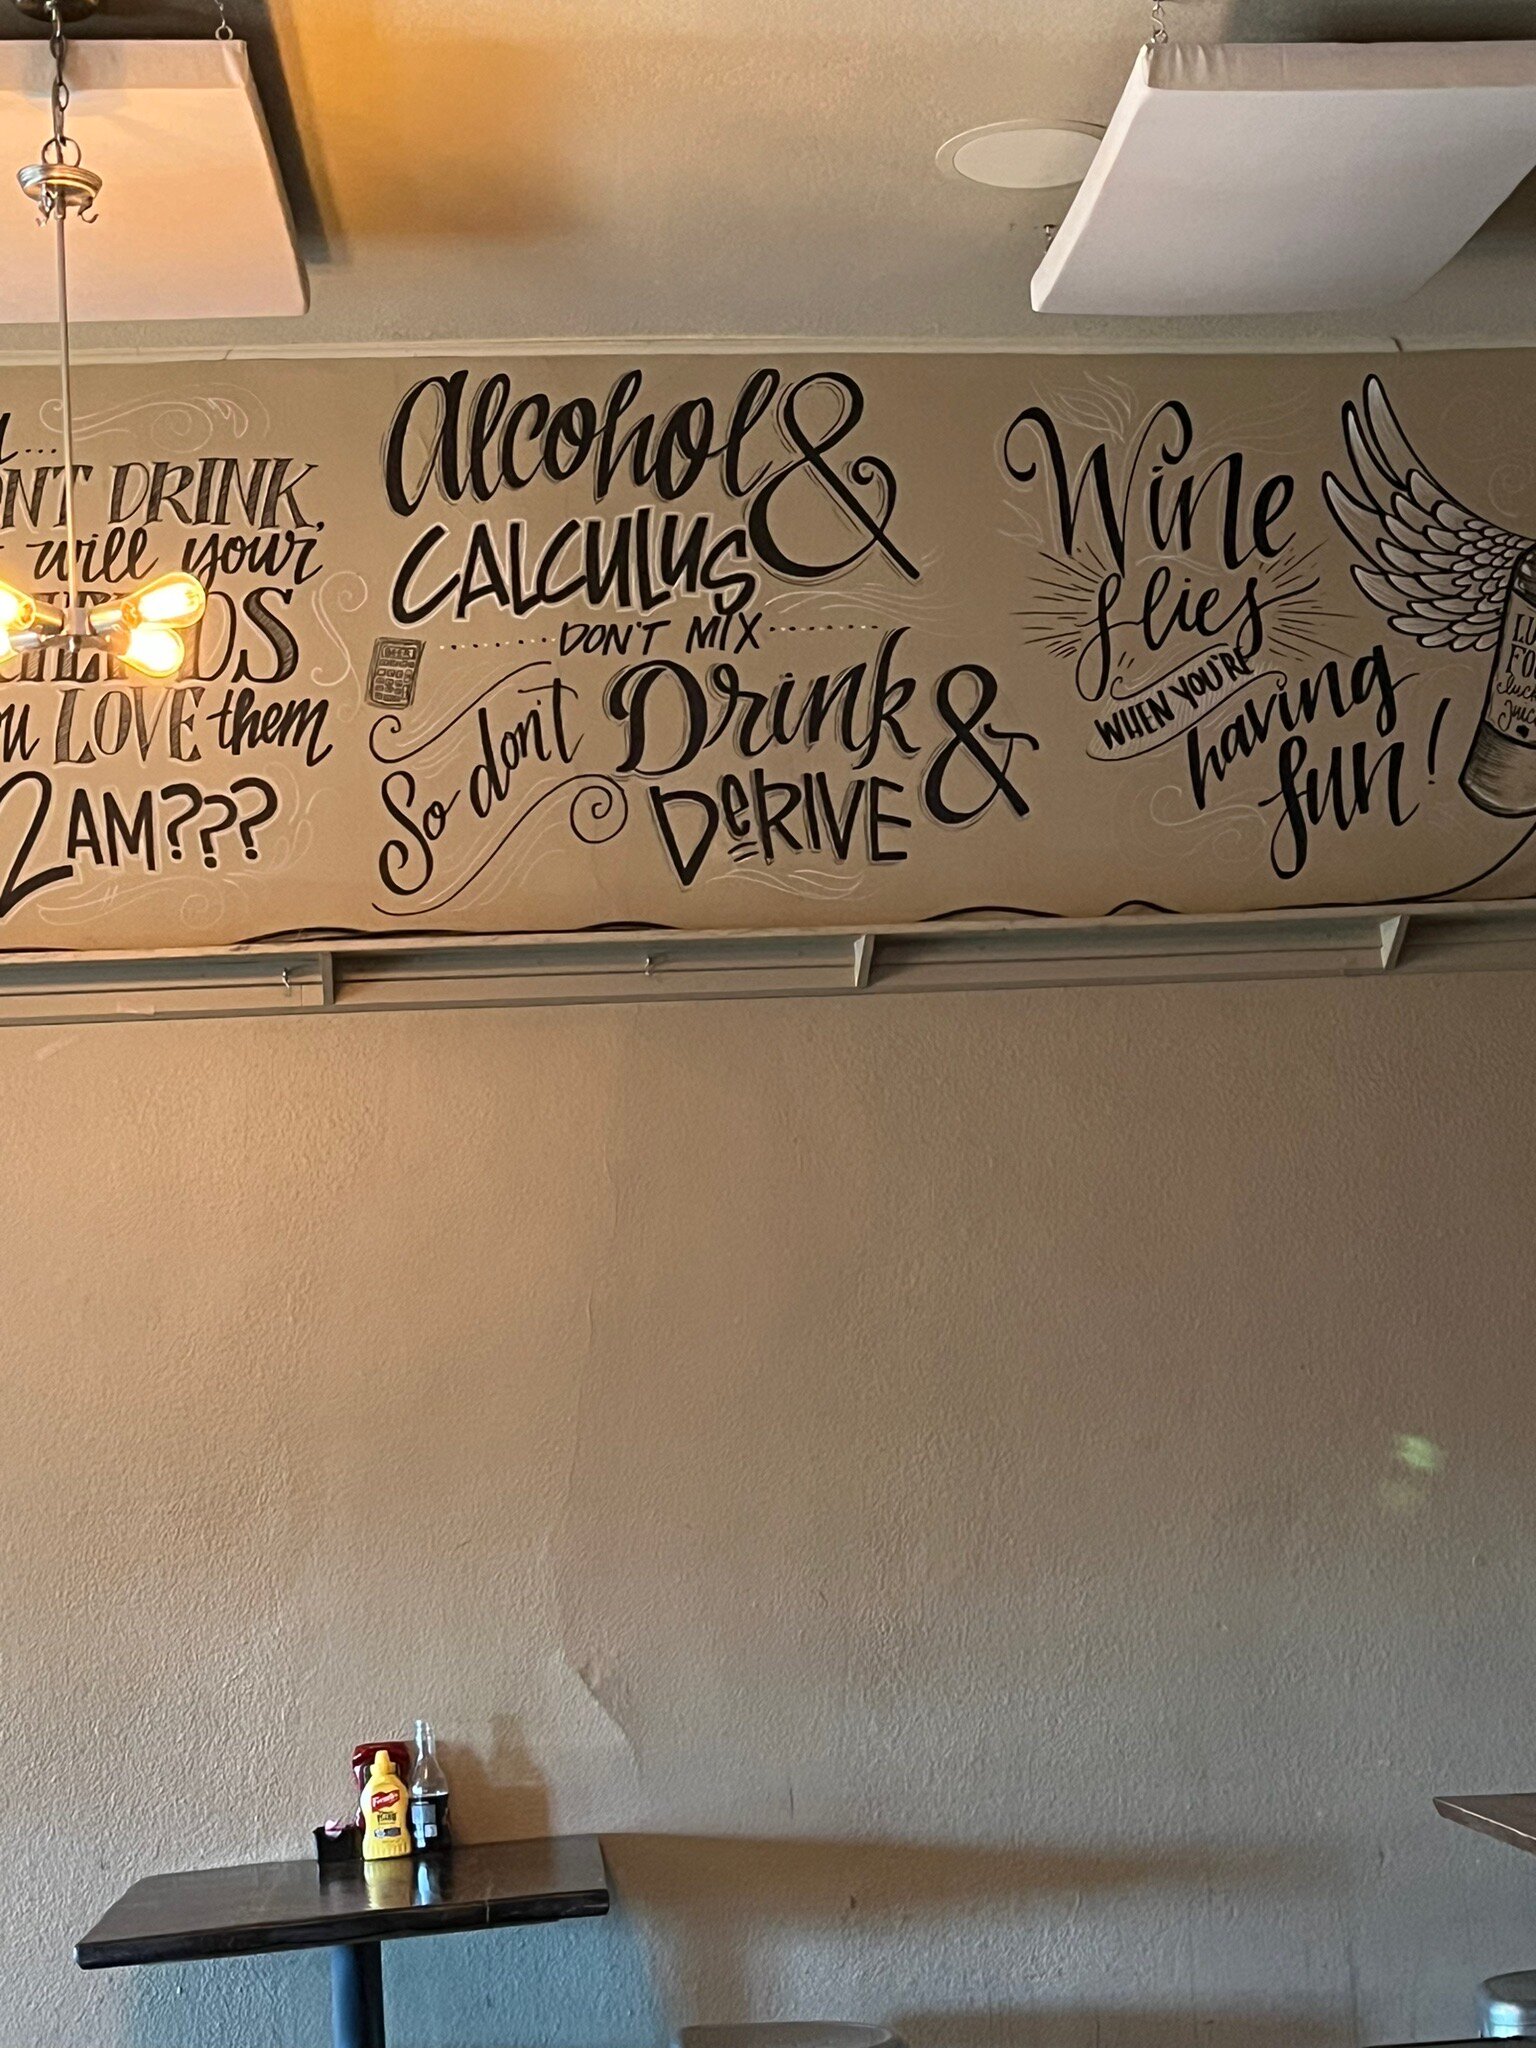 DRINK,
will your
LOVE them
2AM???
Alcohol &
CALCULUS
DON'T MIX
So don't Drink &
DeRIVE
Wine
flies
WHEN YOU'RE
having
fun!
French's